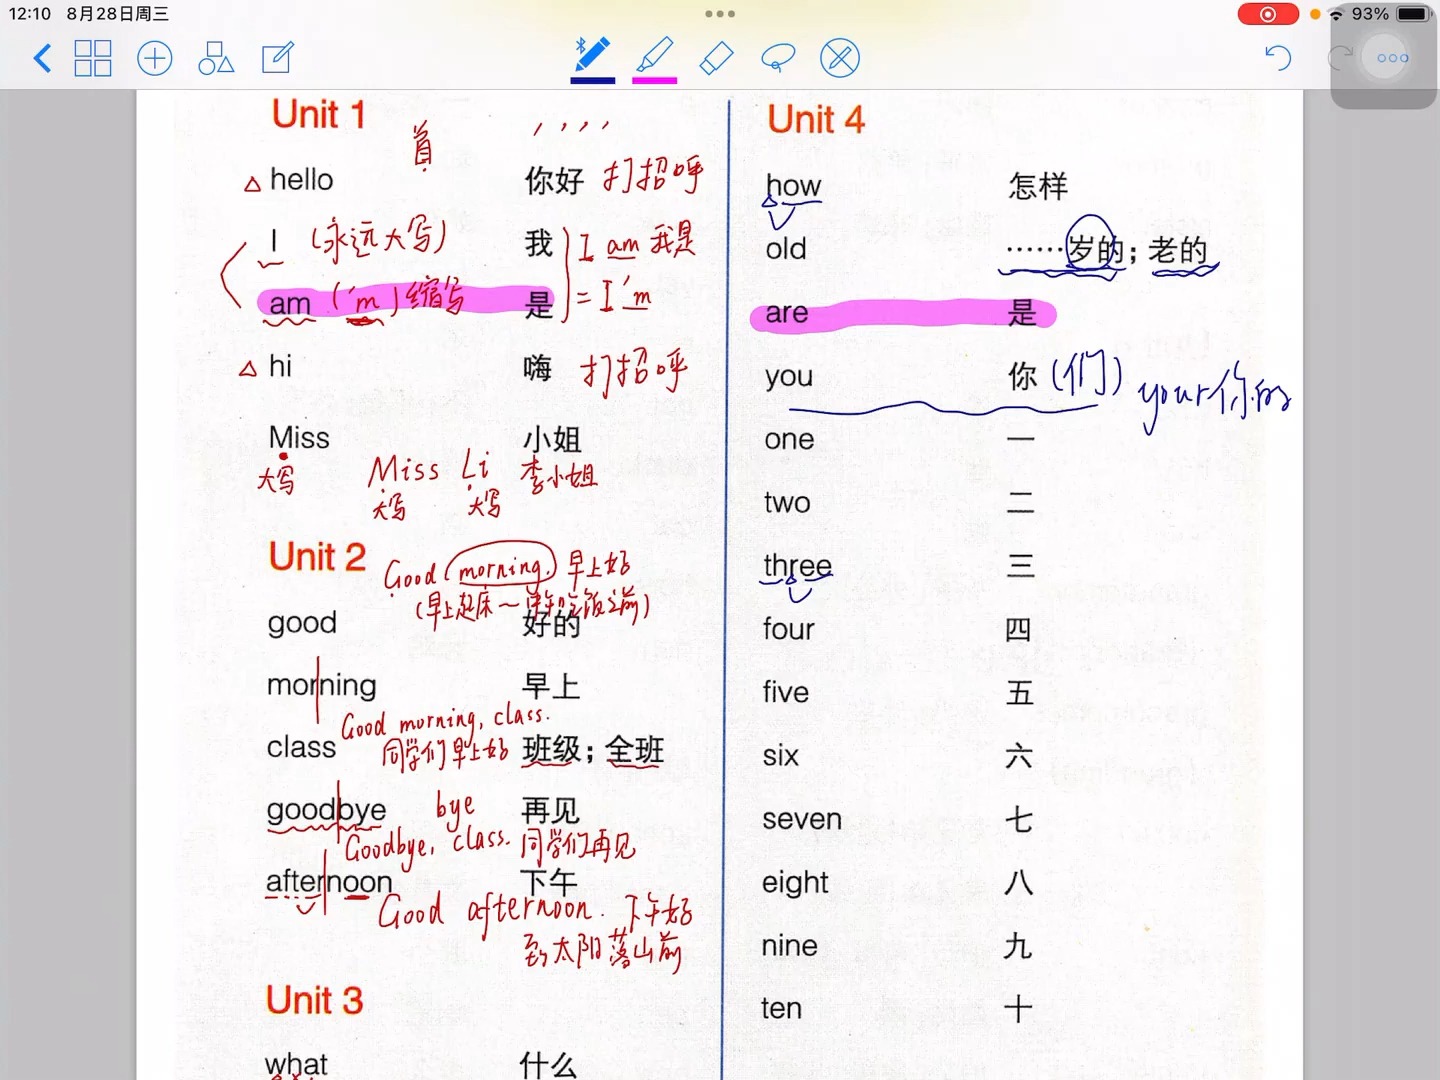 12:10 8月28日周三
93%
Unit 1
hello 你好 打招呼
I (永远大写) 我 I am 我是
am ('m) 缩写 是 = I'm
hi 嗨 打招呼
Miss 小姐
大写 Miss Li 李小姐
大写 大写
Unit 2
Good morning. 早上好
(早上起床~中午吃饭之前)
good 好的
morning 早上
Good morning, class.
class 同学们早上好 班级；全班
goodbye bye 再见
Goodbye, class. 同学们再见
afternoon 下午
Good afternoon. 下午好
到太阳落山前
Unit 3
what 什么
Unit 4
how 怎样
old ……岁的；老的
are 是
you 你 (们) your 你的
one 一
two 二
three 三
four 四
five 五
six 六
seven 七
eight 八
nine 九
ten 十